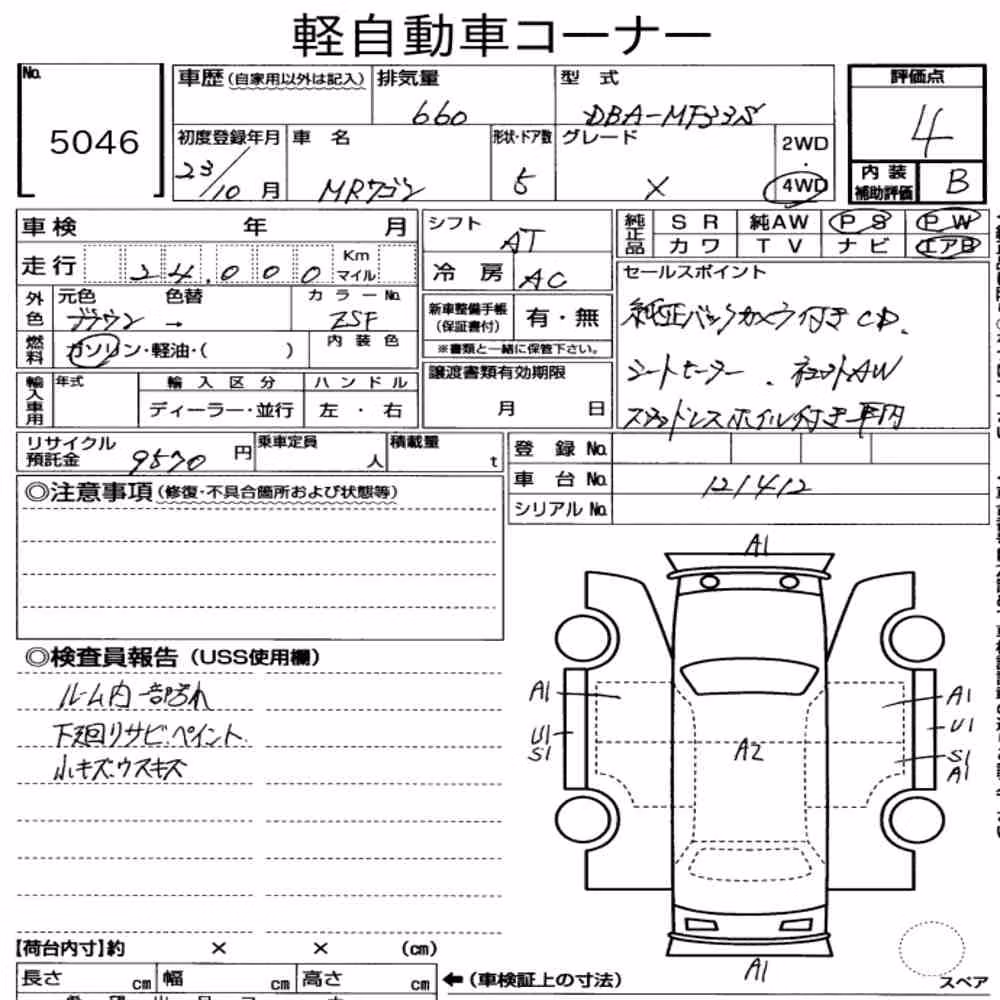 軽自動車コーナー
No. 5046
車歴 (自家用以外は記入)
排気量 660
型式 DBA-MF33S
評価点 4
初度登録年月 23/10月
車名 MRワゴン
形状・ドア数 5
グレード X
2WD・4WD
内装補助評価 B
車検 年 月
シフト AT
純正品 SR 純AW PS PW
カワ TV ナビ エアB
走行 24.000 Km マイル
冷房 AC
セールスポイント
外色 元色 色替 カラーNo.
ブラウン → ZSF
新車整備手帳(保証書付) 有・無
純正バックカメラ付きCD、
燃料 ガソリン・軽油・( )
内装色
※書類と一緒に保管下さい。
シートヒーター、
輸入車用 年式 輸入区分 ハンドル
ディーラー・並行 左・右
譲渡書類有効期限
月 日
スタッドレスホイル付き車内
リサイクル預託金 9570円
乗車定員 人
積載量 t
登録No.
車台No. 121412
シリアルNo.
◎注意事項 (修復・不具合箇所および状態等)
◎検査員報告 (USS使用欄)
ルーム内一部汚れ
下廻りサビ.ペイント.
小キズ.ウスキズ
A1
A1
A1
U1
U1
S1
A2
S1
A1
A1
【荷台内寸】約 × × (cm)
長さ cm 幅 cm 高さ cm
←(車検証上の寸法)
スペア